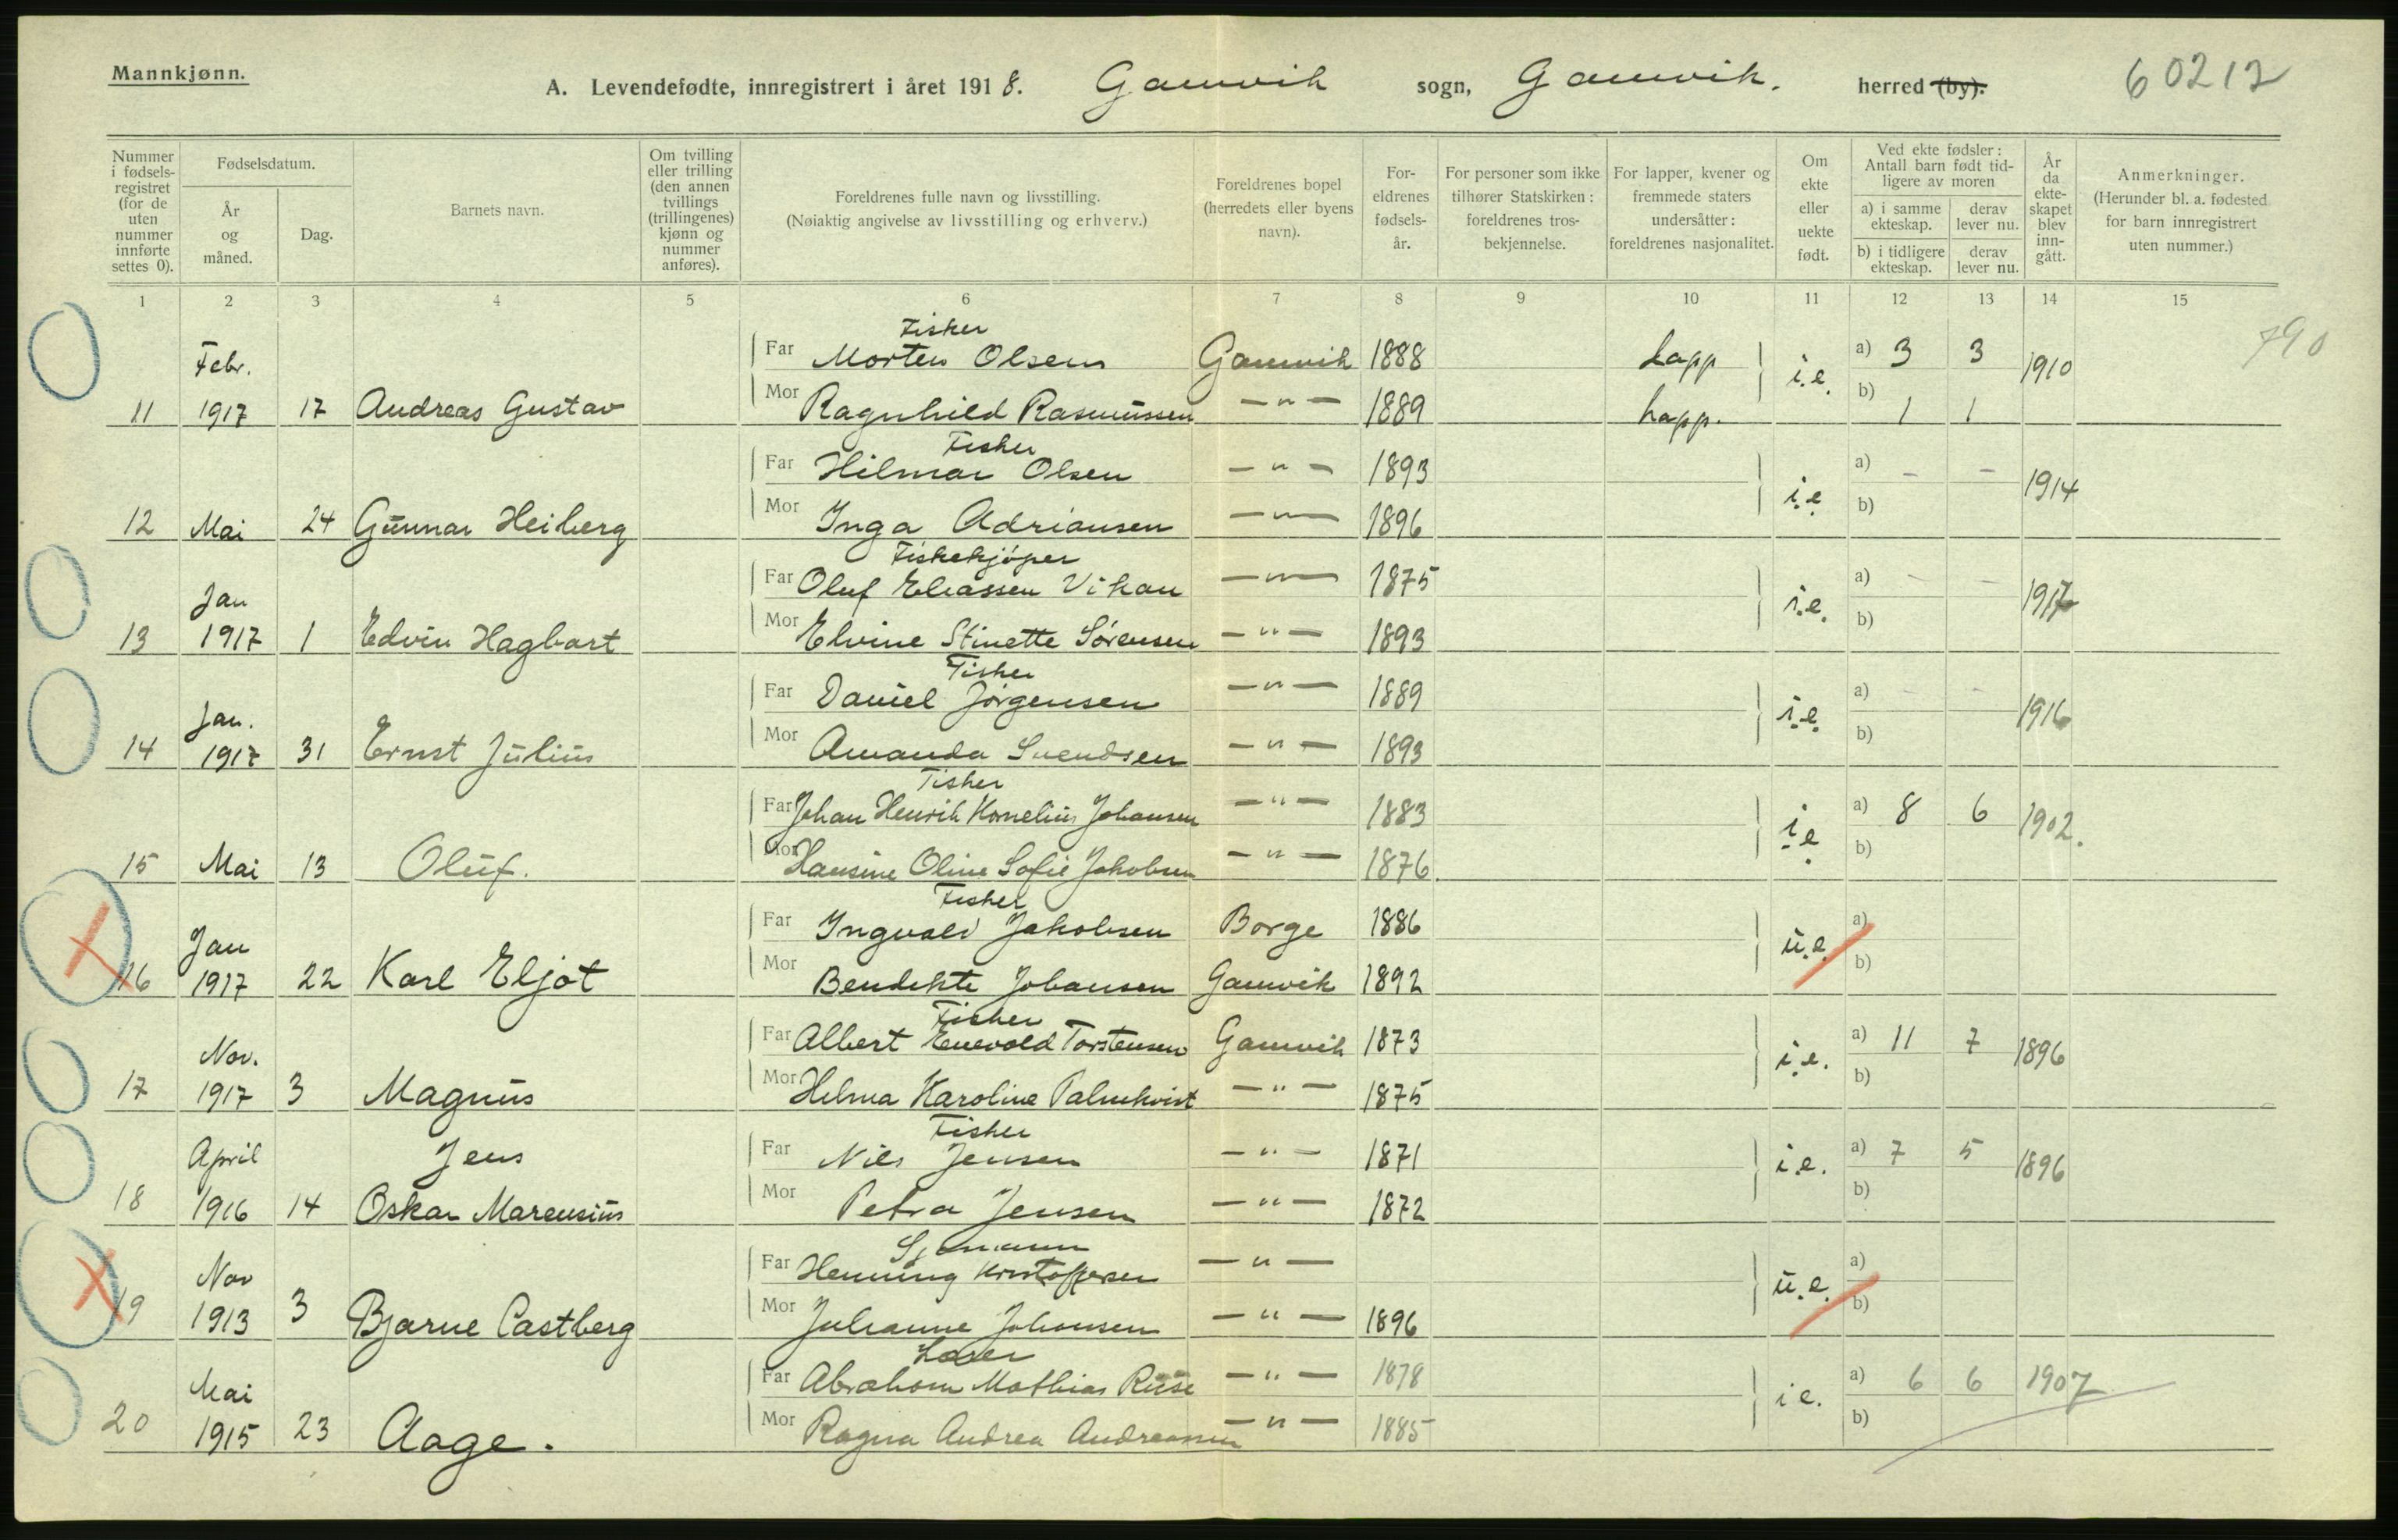 Mannkjønn.
A. Levendefødte, innregistrert i året 1918. Gamvik sogn, Gamvik. herred (by).
60212
Nummer i fødsels-registret (for de uten nummer innførte settes 0).
Fødselsdatum.
År og måned.
Dag.
Barnets navn.
Om tvilling eller trilling (den annen tvillings (trillingenes) kjønn og nummer anføres).
Foreldrenes fulle navn og livsstilling.
(Nøiaktig angivelse av livsstilling og erhverv.)
Foreldrenes bopel (herredets eller byens navn).
For-eldrenes fødsels-år.
For personer som ikke tilhører Statskirken: foreldrenes tros-bekjennelse.
For lapper, kvener og fremmede staters undersåtter: foreldrenes nasjonalitet.
Om ekte eller uekte født.
Ved ekte fødsler: Antall barn født tid-ligere av moren
a) i samme ekteskap. derav lever nu.
b) i tidligere ekteskap. derav lever nu.
År da ekte-skapet blev inn-gått.
Anmerkninger.
(Herunder bl. a. fødested for barn innregistrert uten nummer.)
1 2 3 4 5 6 7 8 9 10 11 12 13 14 15
790
Fisker
Far Morten Olsen Gamvik 1888 Lapp i.e. a) 3 3 1910
Febr.
11 1917 17 Andreas Gustav Mor Ragnhild Rasmussen —"— 1889 Lapp. b) 1 1
Fisker
Far Hilmar Olsen —"— 1893 i.e a) - - 1914
12 Mai 24 Gunnar Heiberg Mor Inga Adriansen —"— 1896 b)
Fiskekjøper
Far Oluf Eliassen Vikan —"— 1875 i.e. a) - - 1917
Jan
13 1917 1 Edvin Hagbart Mor Elvine Stinette Sørensen —"— 1893 b)
Fisker
Far Daniel Jørgensen —"— 1889 i.e. a) - - 1916
Jan.
14 1917 31 Ernst Julius Mor Amanda Svendsen —"— 1893 b)
Fisker
Far Johan Henrik Kornelius Johansen —"— 1883 i.e. a) 8 6 1902.
15 Mai 13 Oluf. Mor Hansine Oline Sofie Jakobsen —"— 1876. b)
Fisker
Far Ingvald Jakobsen Borge 1886 u.e. a)
Jan
16 1917 22 Karl Eljot Mor Bendikte Johansen Gamvik 1892 b)
Fisker
Far Albert Enevold Torstensen Gamvik 1873 i.e. a) 11 7 1896
Nov.
17 1917 3 Magnus Mor Helma Karoline Palmkvist —"— 1875 b)
Fisker
Far Nils Jensen —"— 1871 i.e. a) 7 5 1896
April Jens
18 1916 14 Oskar Marensius Mor Petra Jensen —"— 1872 b)
Sjømann
Far Henning Kristoffersen —"— u.e. a)
Nov
19 1913 3 Bjarne Castberg Mor Julianne Johansen —"— 1896 b)
Far Abraham Mathias Ruse —"— 1878 i e. a) 6 6 1907
Mai
20 1915 23 Aage. Mor Ragna Andrea Andreassen —"— 1885 b)